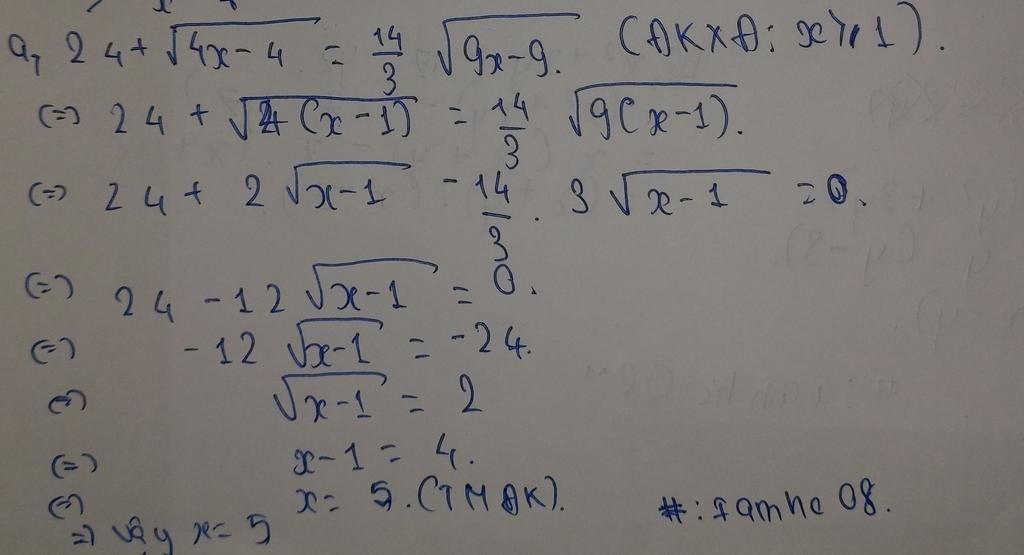 a, 24 + √(4x-4) = 14/3 √(9x-9). (ĐKXĐ: x ≥ 1).
(=) 24 + √(4(x-1)) = 14/3 √(9(x-1)).
(=) 24 + 2√(x-1) - 14/3 . 3√(x-1) = 0.
(=) 24 - 12√(x-1) = 0.
(=) -12√(x-1) = -24.
(=) √(x-1) = 2
(=) x-1 = 4.
(=) x = 5. (TMĐK).
=) vậy x = 5